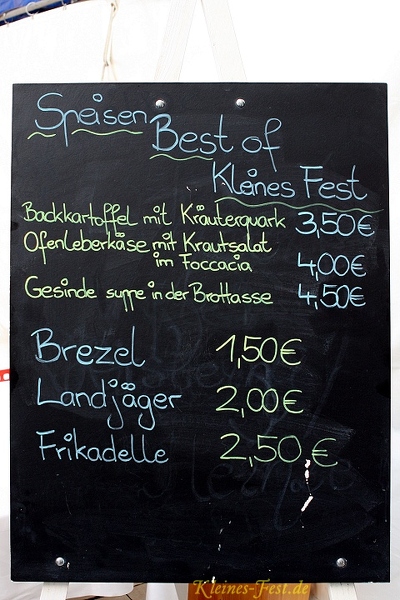 Speisen
Best of
Kleines Fest
Backkartoffel mit Kräuterquark 3,50€
Ofenleberkäse mit Krautsalat
im Foccacia 4,00€
Gesinde suppe in der Brottasse 4,50€
Brezel 1,50€
Landjäger 2,00€
Frikadelle 2,50€
Kleines-Fest.de